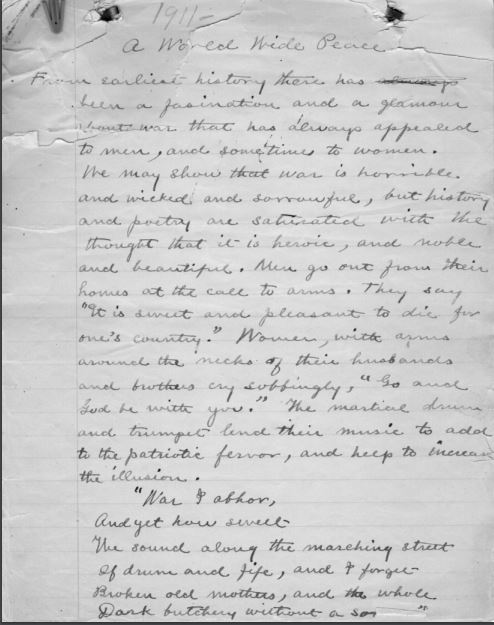 1911-
A World Wide Peace
From earliest history there has always
been a fasination and a glamour
about war that has always appealed
to men, and sometime to women.
We may show that war is horrible
and wicked and sorrowful, but history
and poetry are saturated with the
thought that it is heroic, and noble
and beautiful. Men go out from their
homes at the call to arms. They say
"It is sweet and pleasant to die for
one's country." Women, with arms
around the necks of their husbands
and brothers cry sobbingly, "Go and
God be with you." The martial drum
and trumpet lend their music to add
to the patriotic fervor, and help to increase
the illusion.
"War I abhor,
And yet how sweet
The sound along the marching street
Of drum and fife, and I forget
Broken old mothers, and the whole
Dark butchery without a soul"